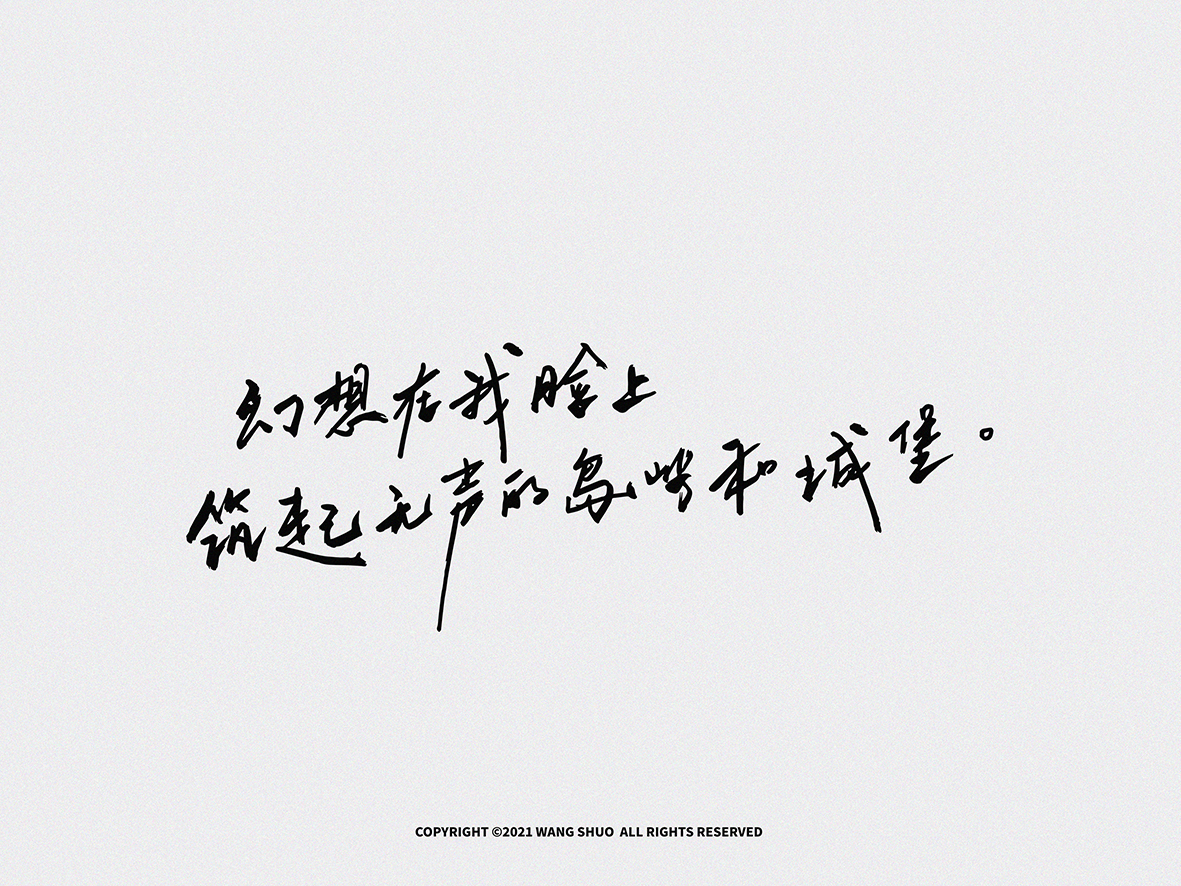 幻想在我脸上
筑起无声的岛屿和城堡。
COPYRIGHT ©2021 WANG SHUO ALL RIGHTS RESERVED